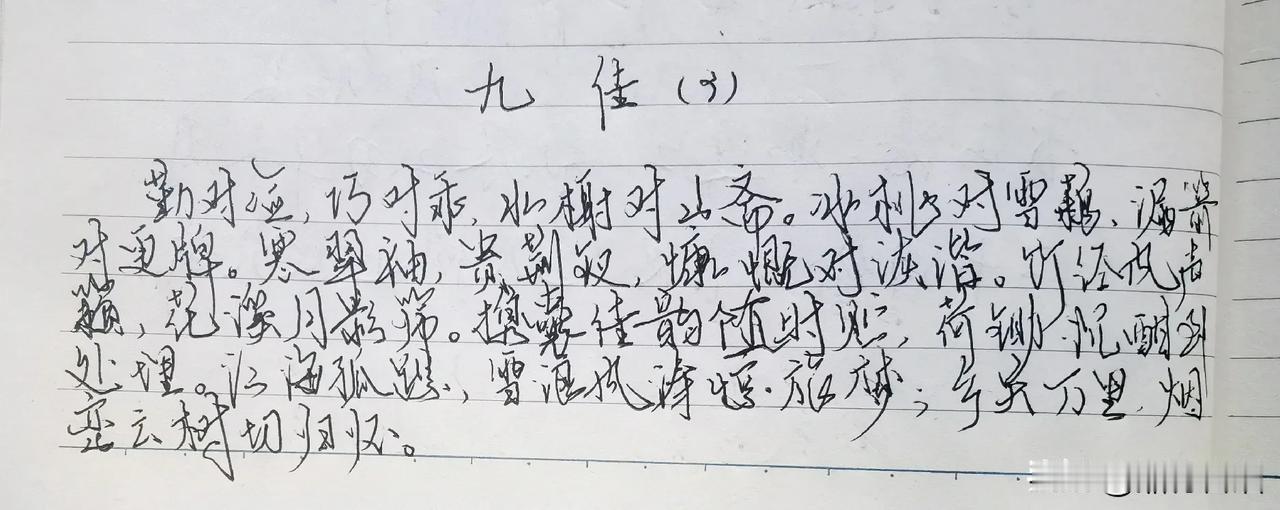 九 佳(3)
勤对俭,巧对乖,水榭对山斋。冰桃对雪藕,漏箭
对更牌。寒翠袖,贵荆钗,慷慨对诙谐。竹径风声
籁,花溪月影筛。携囊佳韵随时贮,荷锄沉酣到
处埋。江海孤踪,雪浪风涛惊旅梦;乡关万里,烟
峦云树切归怀。